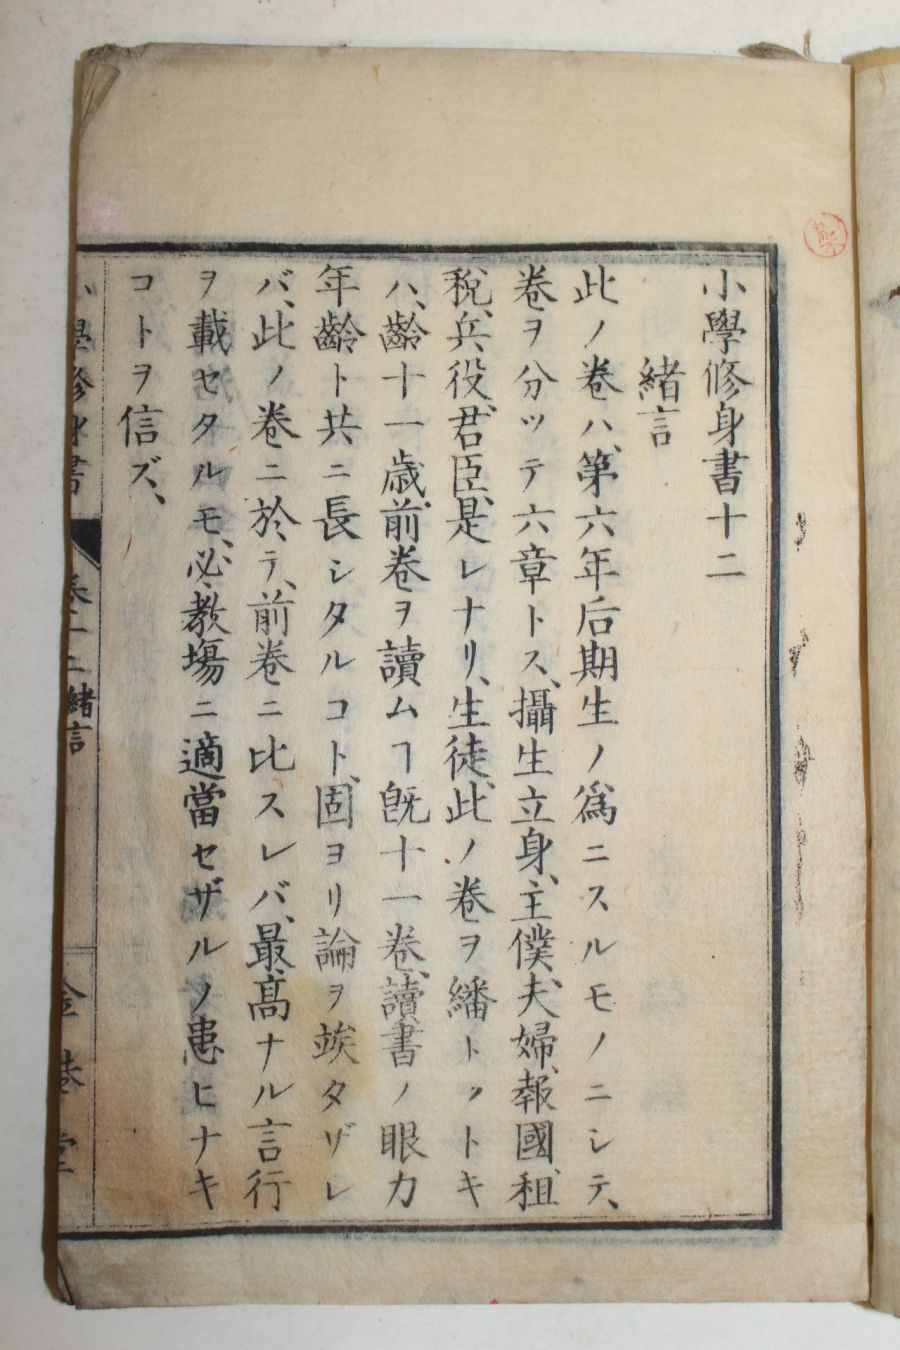 小學修身書十二
緒言
此ノ卷ハ、第六年后期生ノ爲ニスルモノニシテ、
卷ヲ分ッテ六章トス、攝生立身、主僕、夫婦、報國、租
税、兵役、君臣、是レナリ、生徒、此ノ卷ヲ繙トットキ
ハ、齡十一歳、前卷ヲ讀ムヿ旣十一卷、讀書ノ眼力
年齡ト共ニ長シタルコト、固ヨリ論ヲ竢タザレ
バ、此ノ卷ニ於テ、前卷ニ比スレバ、最高ナル言行
ヲ載セタルモ、必、教塲ニ適當セザルノ患ヒナキ
コトヲ信ズ、
小學修身書
卷十二緒言
金港堂